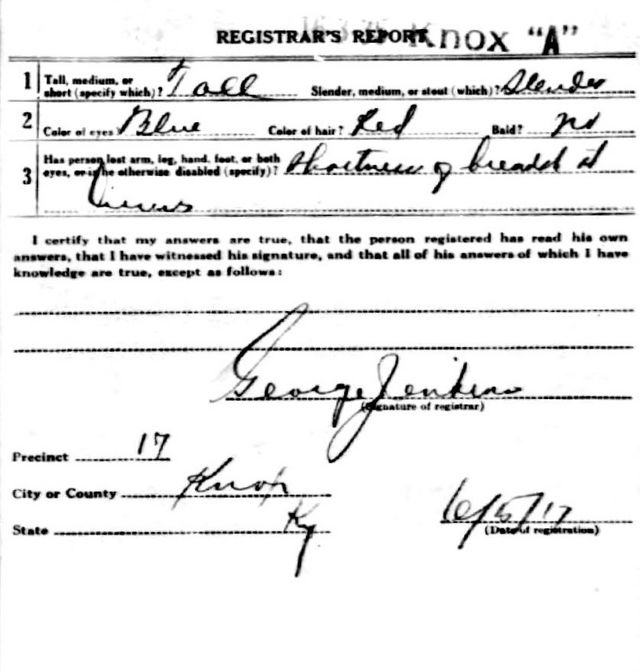 REGISTRAR'S REPORT Knox "A"
1 Tall, medium, or short (specify which)? Tall Slender, medium, or stout (which)? Slender
2 Color of eyes Blue Color of hair? Red Bald? no
3 Has person lost arm, leg, hand, foot, or both
eyes, or is he otherwise disabled (specify)? Shortness of breadth at
times
I certify that my answers are true, that the person registered has read his own
answers, that I have witnessed his signature, and that all of his answers of which I have
knowledge are true, except as follows:
George Jenkins
(Signature of registrar)
Precinct 17
City or County Knox
State Ky 6/5/17
(Date of registration)